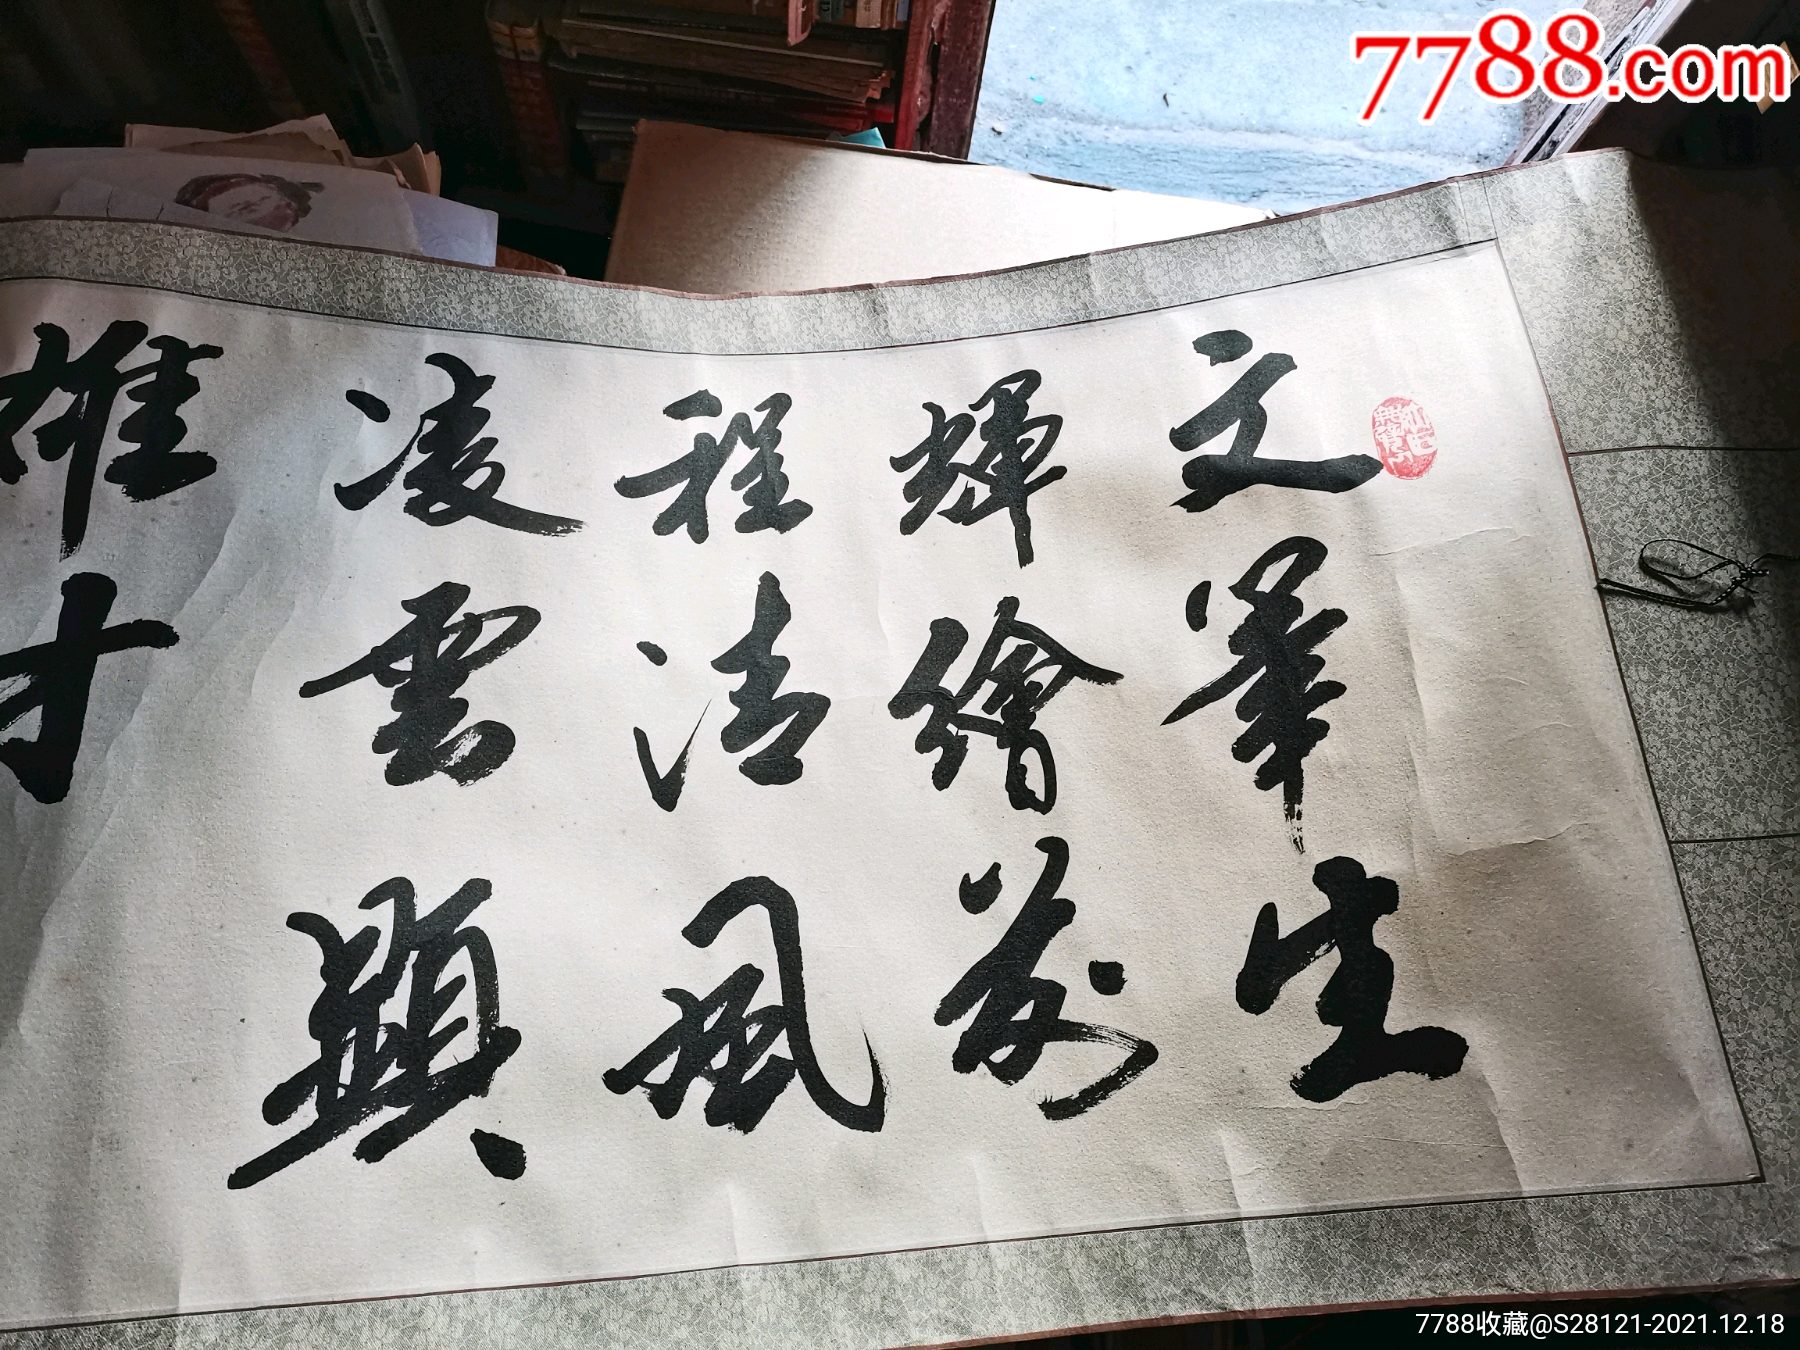 7788.com
文筆生
輝繪前
程清風
凌雲顯
雄才
7788收藏@S28121-2021.12.18